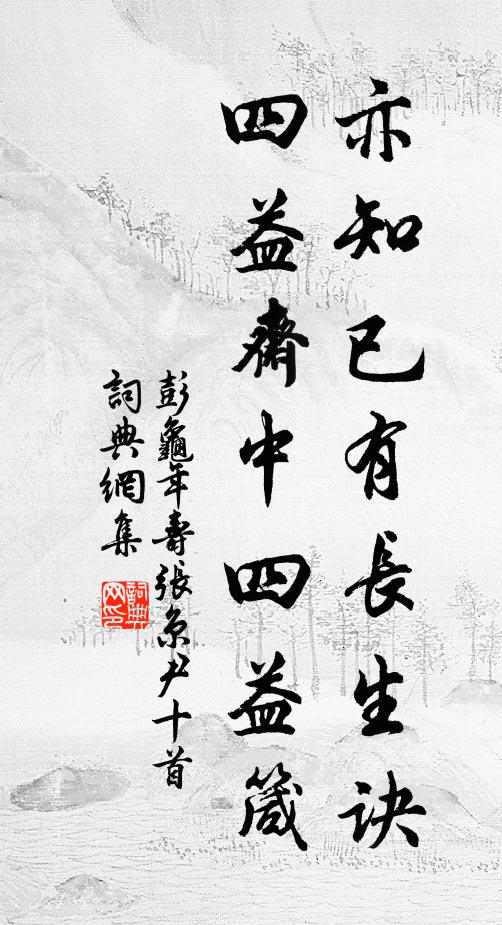 亦知已有長生訣
四益齋中四益箴
彭龜年壽張京尹十首
詞典網集
詞典
網印